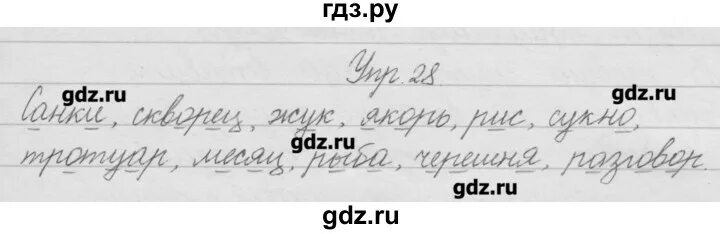 гдз.ру
Упр. 28.
gdz.ru gdz.ru
Санки, скворец, жук, якорь, рис, сукно,
gdz.ru
тротуар, месяц, рыба, черешня, разговор.
gdz.ru
gdz.ru